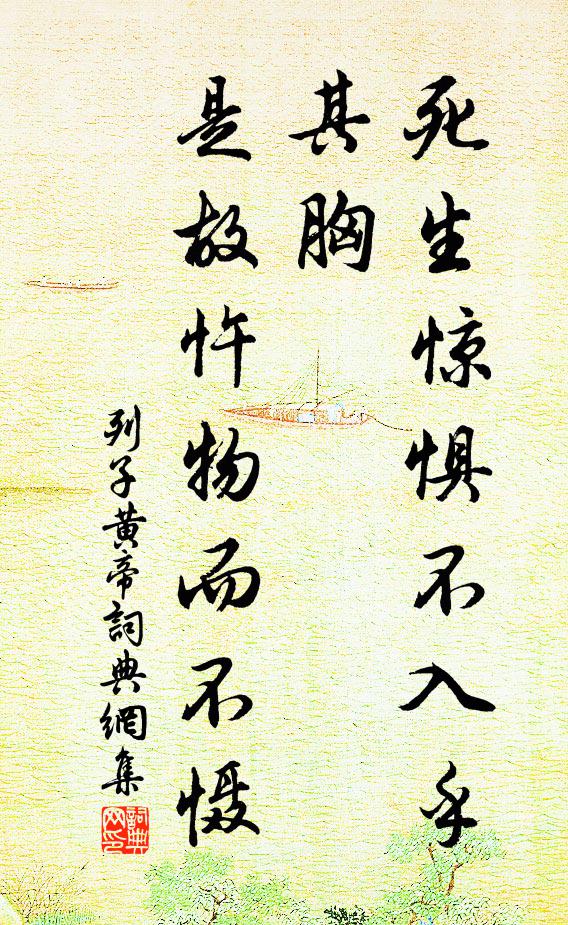 死生惊惧不入乎
其胸
是故忤物而不慑
列子黄帝詞典網集
詞典
网印